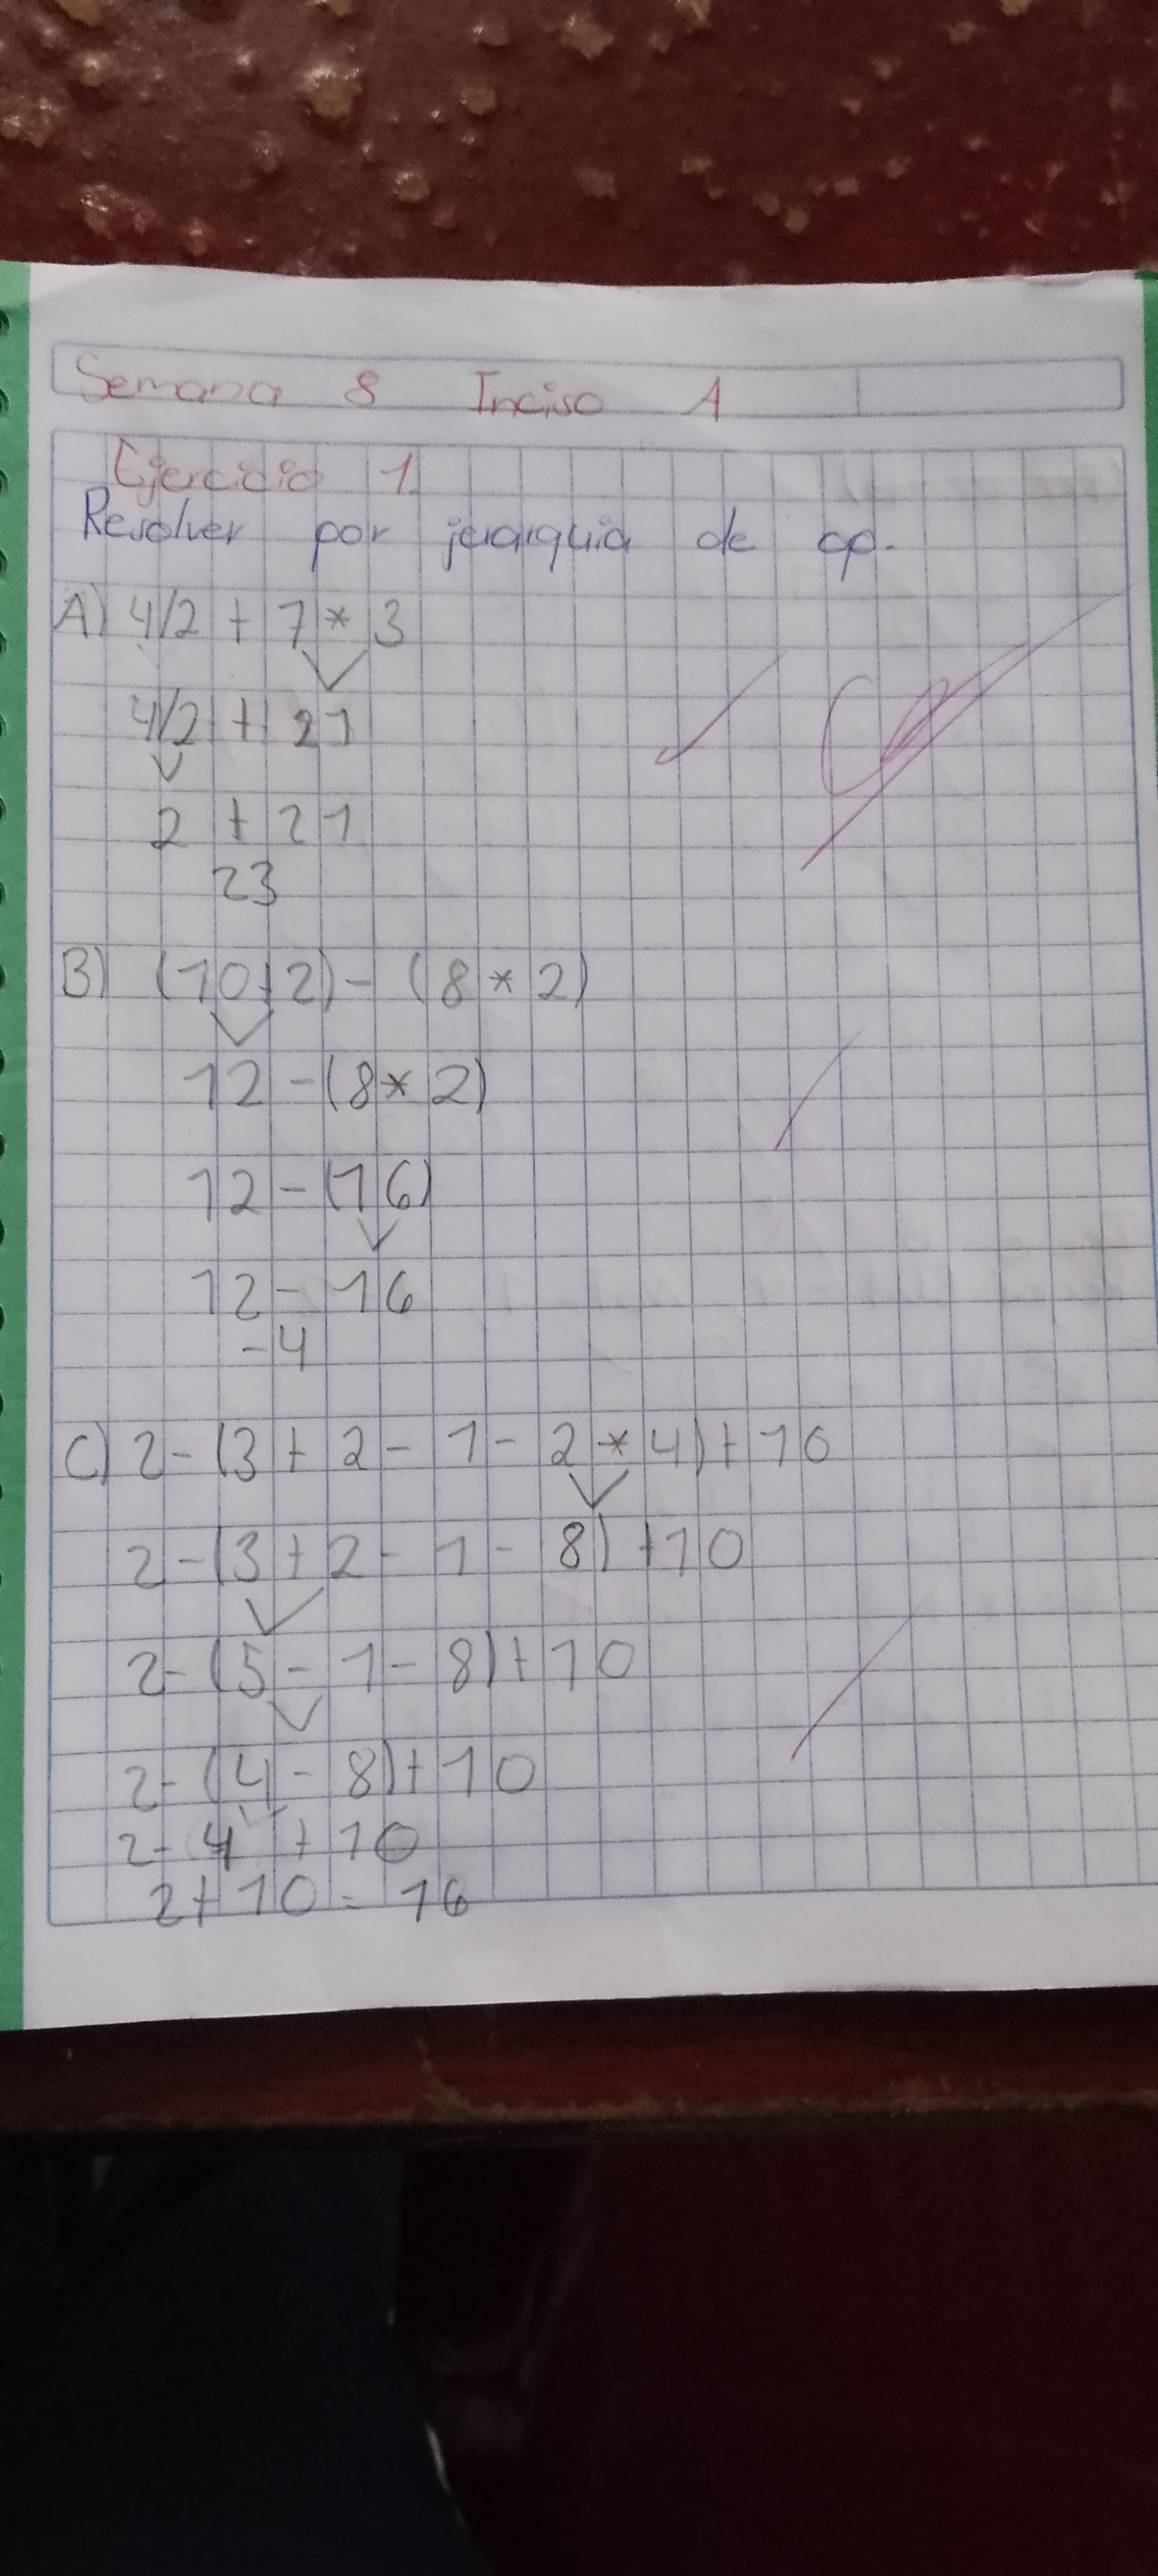 Semana 8 Inciso A
Ejercicio 1
Resolver por jerarquia de op.
A) 4/2 + 7 * 3
4/2 + 21
2 + 21
23
B) (10+2) - (8 * 2)
12 - (8 * 2)
12 - (16)
12 - 16
-4
C) 2 - (3 + 2 - 1 - 2 * 4) + 10
2 - (3 + 2 - 1 - 8) + 10
2 - (5 - 1 - 8) + 10
2 - (4 - 8) + 10
2 - 4 + 10
2 + 10 = 16